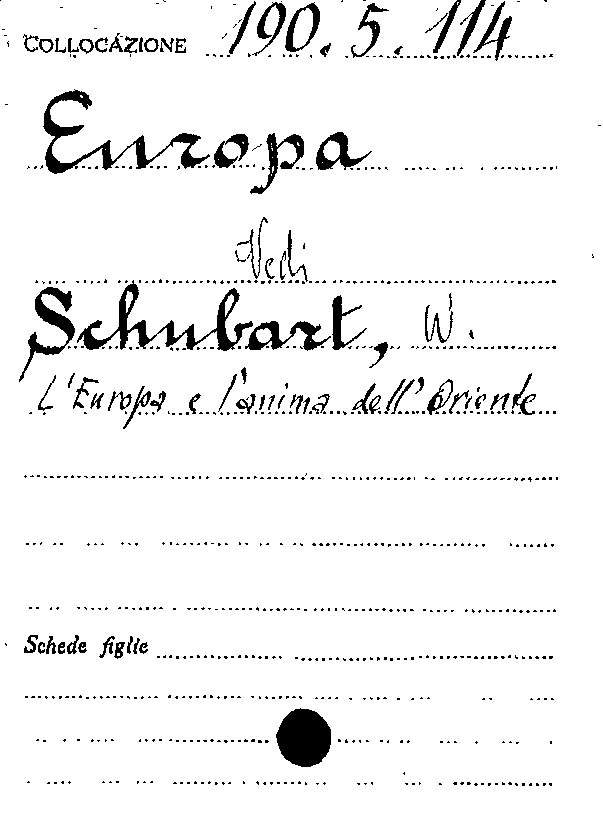 COLLOCAZIONE 190. 5. 114
Europa
Vedi
Schubart, W.
L'Europa e l'anima dell'Oriente
Schede figlie